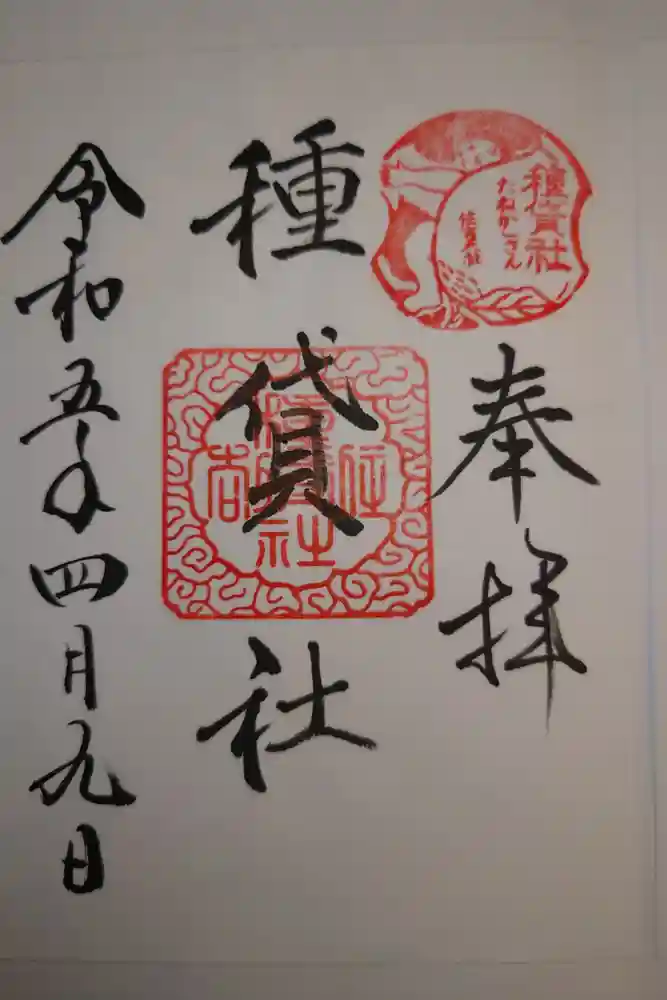 種貸社
たねかしさん
住吉大社
奉拝
種貸社
住吉
種貸社
令和五年四月九日